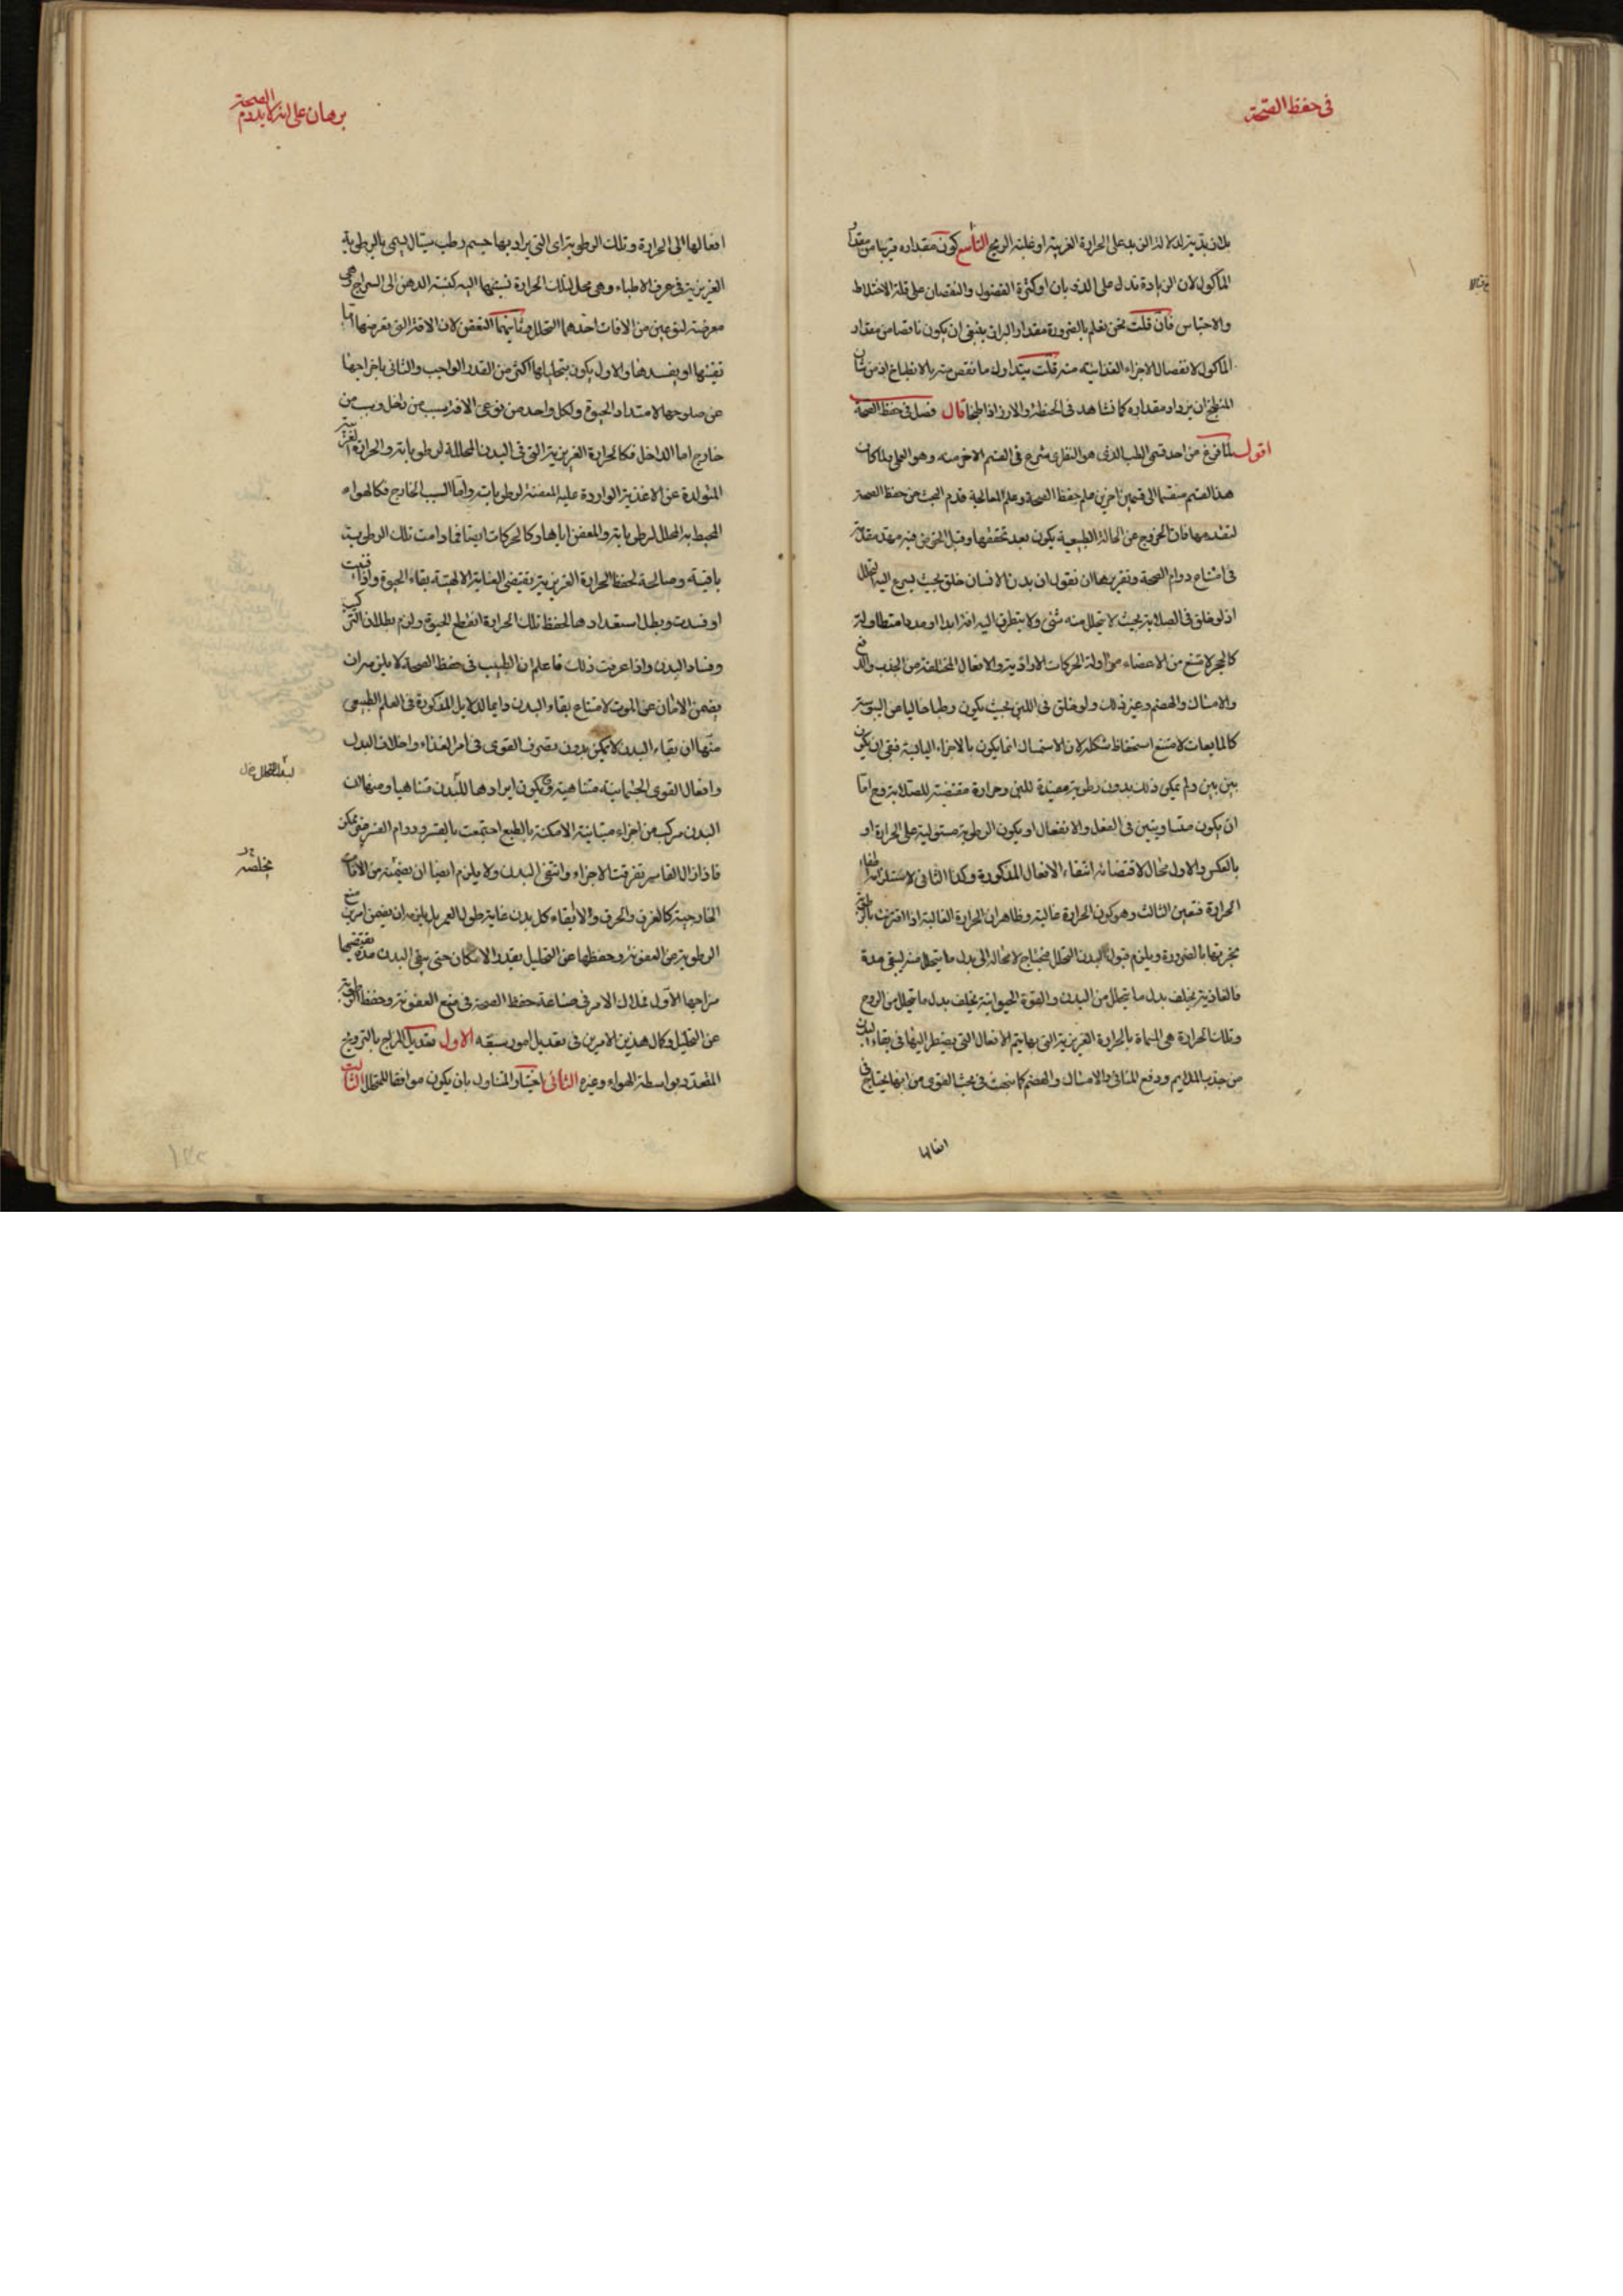 في حفظ الصحة
بلا زبدية لدلالة الزبد على الحرارة الغريبة او غلبة الريح التاسع كون مقداره قريبا من مقدار
الماكول لان الزيادة تدل على الذوبان او كثرة الفضول والنقصان على قلة الاختلاط
والاحتباس فان قلت نحن نعلم بالضرورة مقدار البراز ينبغي ان يكون ناقصا من مقدار
الماكول لانفصال الاجزاء الغذائية منه قلت يتداول ما نقص منه بالانطباخ اذ من شان
المنطبخ ان يزداد مقداره كما نشاهد في الحنطة والارز اذا طبخا قال فصل في حفظ الصحة
اقول لما فرغ من احد قسمي الطب الذي هو النظري شرع في القسم الاخر منه وهو العملي ولما كان
هذا القسم منقسما الى قسمين اخرين علم حفظ الصحة وعلم المعالجة قدم البحث عن حفظ الصحة
لتقدمها فان الخروج عن الحالة الطبيعية يكون بعد تحققها وقبل الخوض فيه مهد مقدمة
في امتناع دوام الصحة وتقريرها ان نقول ان بدن الانسان خلق بحيث يسرع اليه التحلل
اذ لو خلق في الصلابة بحيث لا يتحلل منه شئ ولا يتطرق اليه افة ابدا او مددا متطاولة
كالحجر لامتنع من الاعضاء مزاولة الحركات الارادية والافعال المختلفة من الجذب والدفع
والامساك والهضم وغير ذلك ولو خلق في اللين بحيث يكون رطبا خاليا عن اليبوسة
كالمايعات لامتنع استحفاظ شكله لان الاستمساك انما يكون بالاجزاء اليابسة فبقي ان يكون
بين بين ولم يمكن ذلك بدون رطوبة مفيدة للين وحرارة مقتضية للصلابة وح اما
ان يكون متساويتين في الفعل والانفعال او يكون الرطوبة مستولية على الحرارة او
بالعكس والاول محال لاقتضائه انتفاء الافعال المذكورة وكذا الثاني لاستلزامه انطفاء
الحرارة فتعين الثالث وهو كون الحرارة غالبة وظاهر ان الحرارة الغالبة اذا اقترنت بالرطوبة
بخرتها بالضرورة ويلزم قبول البدن التحلل فيحتاج لا محالة الى بدل ما يتحلل منه ليبقى مدة
فالغاذية يخلف بدل ما يتحلل من البدن والقوة الحيوانية يخلف بدل ما تحلل من الروح
وتلك الحرارة هي المسماة بالحرارة الغريزية التي بها يتم الافعال التي يضطر اليها في بقاء البدن
من جذب الملايم ودفع المنافي والامساك والهضم كما سبحت في بحث القوى من انها يحتاج في
افعالها
برهان على انه لا يدوم الصحة
افعالها الى الحرارة وتلك الرطوبة اي التي يراد بها جسم رطب سيال يسمى بالرطوبة
الغريزية في عرف الاطباء وهي محل لتلك الحرارة نسبتها اليه كنسبة الدهن الى السراج وهي
معرضة لنوعين من الافات احدهما التحلل وثانيهما التعفن لان الافة التي تعرضها اما
تفنيها او يفسدها والاول يكون بتحليلها اكثر من القدر الواجب والثاني باخراجها
عن صلوحها لامتداد الحيوة ولكل واحد من نوعي الافة سبب من داخل وسبب من
خارج اما الداخل فكالحرارة الغريزية التي في البدن المحللة لرطوباته والحرارة الغريبة
المتولدة عن الاغذية الواردة عليه المعفنة لرطوباته واما السبب الخارج فكالهواء
المحيط به المحلل لرطوباته والمعفن اياها وكالحركات ايضا فما دامت تلك الرطوبة
باقية وصالحة لحفظ الحرارة الغريزية يقتضي العناية الالهية بقاء الحيوة واذا فنيت
او فسدت وبطل استعدادها لحفظ تلك الحرارة انقطع الحيوة ولزم بطلان التركيب
وفساد البدن واذا عرفت ذلك فاعلم ان الطبيب في حفظ الصحة لا يلزمه ان
يضمن الامان عن الموت لامتناع بقاء البدن دايما للدلايل المذكورة في العلم الطبيعي
منها ان بقاء البدن لا يمكن بدون تصرف القوى في امر الغذاء واخلاف البدل
وافعال القوى الجسمانية متناهية وح يكون ايرادها للبدن متناهيا ومنها ان
البدن مركب من اجزاء متباينة الامكنة بالطبع اجتمعت بالقسر ودوام القسر غير ممكن
فاذا زال القاسر تفرقت الاجزاء وانتفى البدن ولا يلزم ايضا ان يضمن من الافات
الخارجية كالغرق والحرق والابقاء كل بدن غاية طول العمر بل يلزمه ان يضمن امرين منع
الرطوبة من العفونة وحفظها عن التحليل بقدر الامكان حتى يبقى البدن مدة يقتضيها
مزاجها الاول فملاك الامر في صناعة حفظ الصحة في منع العفونة وحفظ الرطوبة
عن التحليل وكمال هذين الامرين في تعديل امور سبعة الاول تعديل المزاج بالترويح
المتعدد بواسطة الهواء وغيره الثاني اختيار المتناول بان يكون موافقا للمتحلل الثالث
لبدل المتحلل